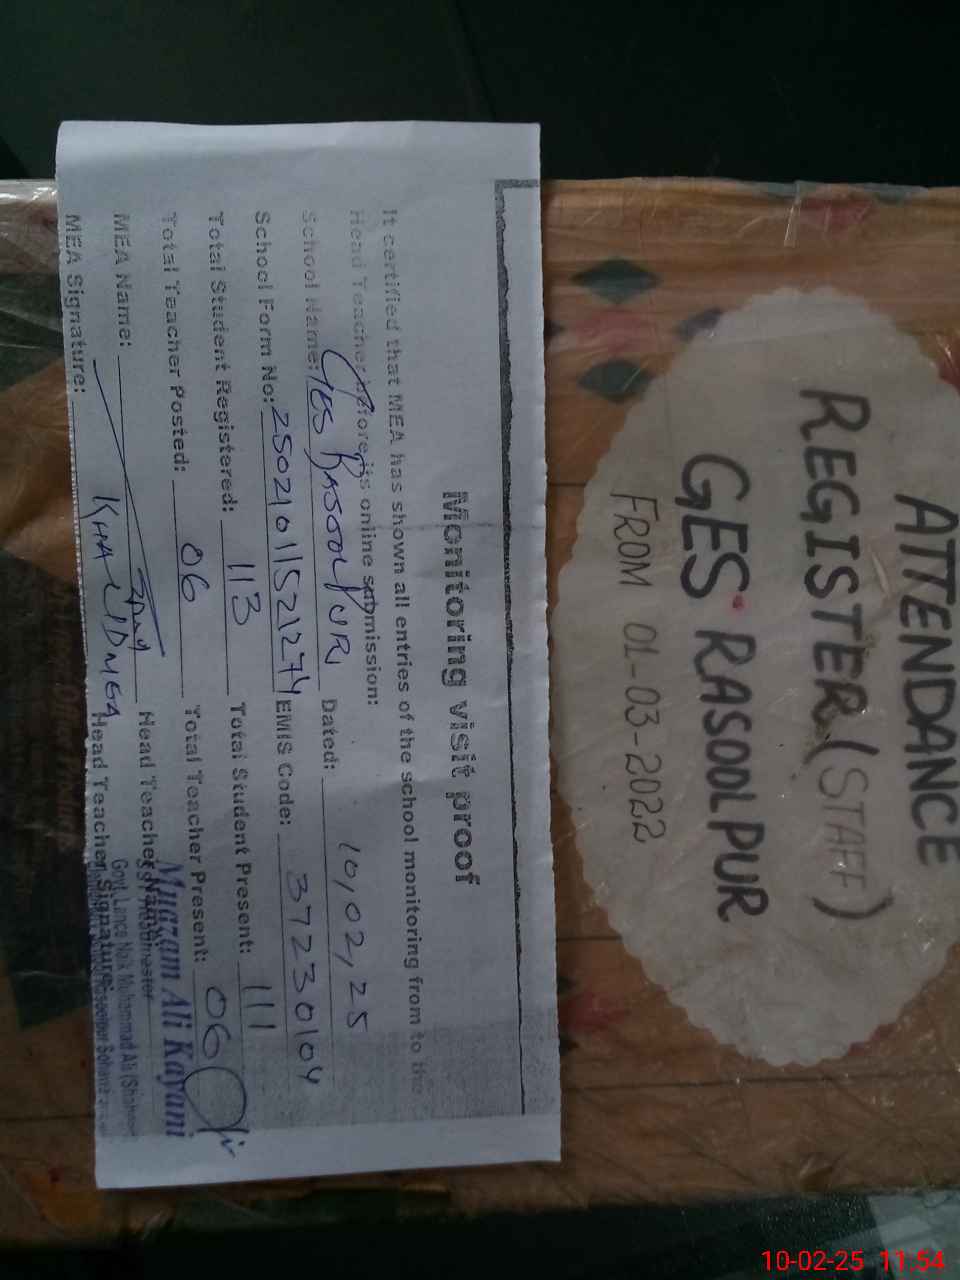 ATTENDANCE
REGISTER (STAFF)
GES RASOOLPUR
FROM 01-03-2022
Monitoring visit proof
It certified that MEA has shown all entries of the school monitoring from to the
Head Teacher before its online submission:
School Name: GES RASOOLPUR Dated: 10,02,25
School Form No: 25021011521274 EMIS Code: 37230104
Total Student Registered: 113 Total Student Present: 111
Total Teacher Posted: 06 Total Teacher Present: 06
MEA Name: Head Teacher Name
MEA Signature: Head Teacher Signature:
Muazam Ali Kayani
Headmaster
Govt. Lance Naik Muhammad Ali (Shaheed)
10-02-25 11:54